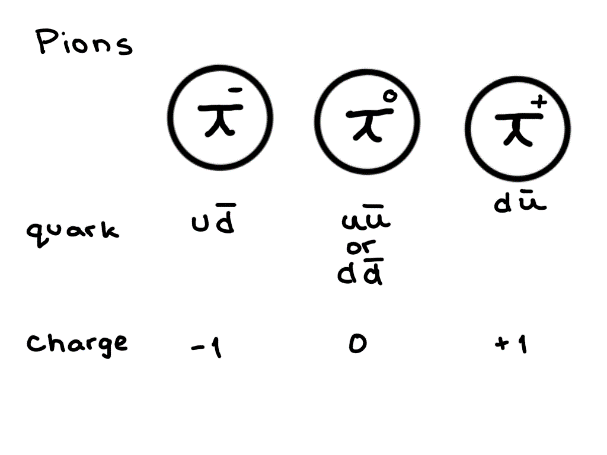 Pions
π⁻ π⁰ π⁺
quark ud̅ uu̅ or dd̅ du̅
charge -1 0 +1